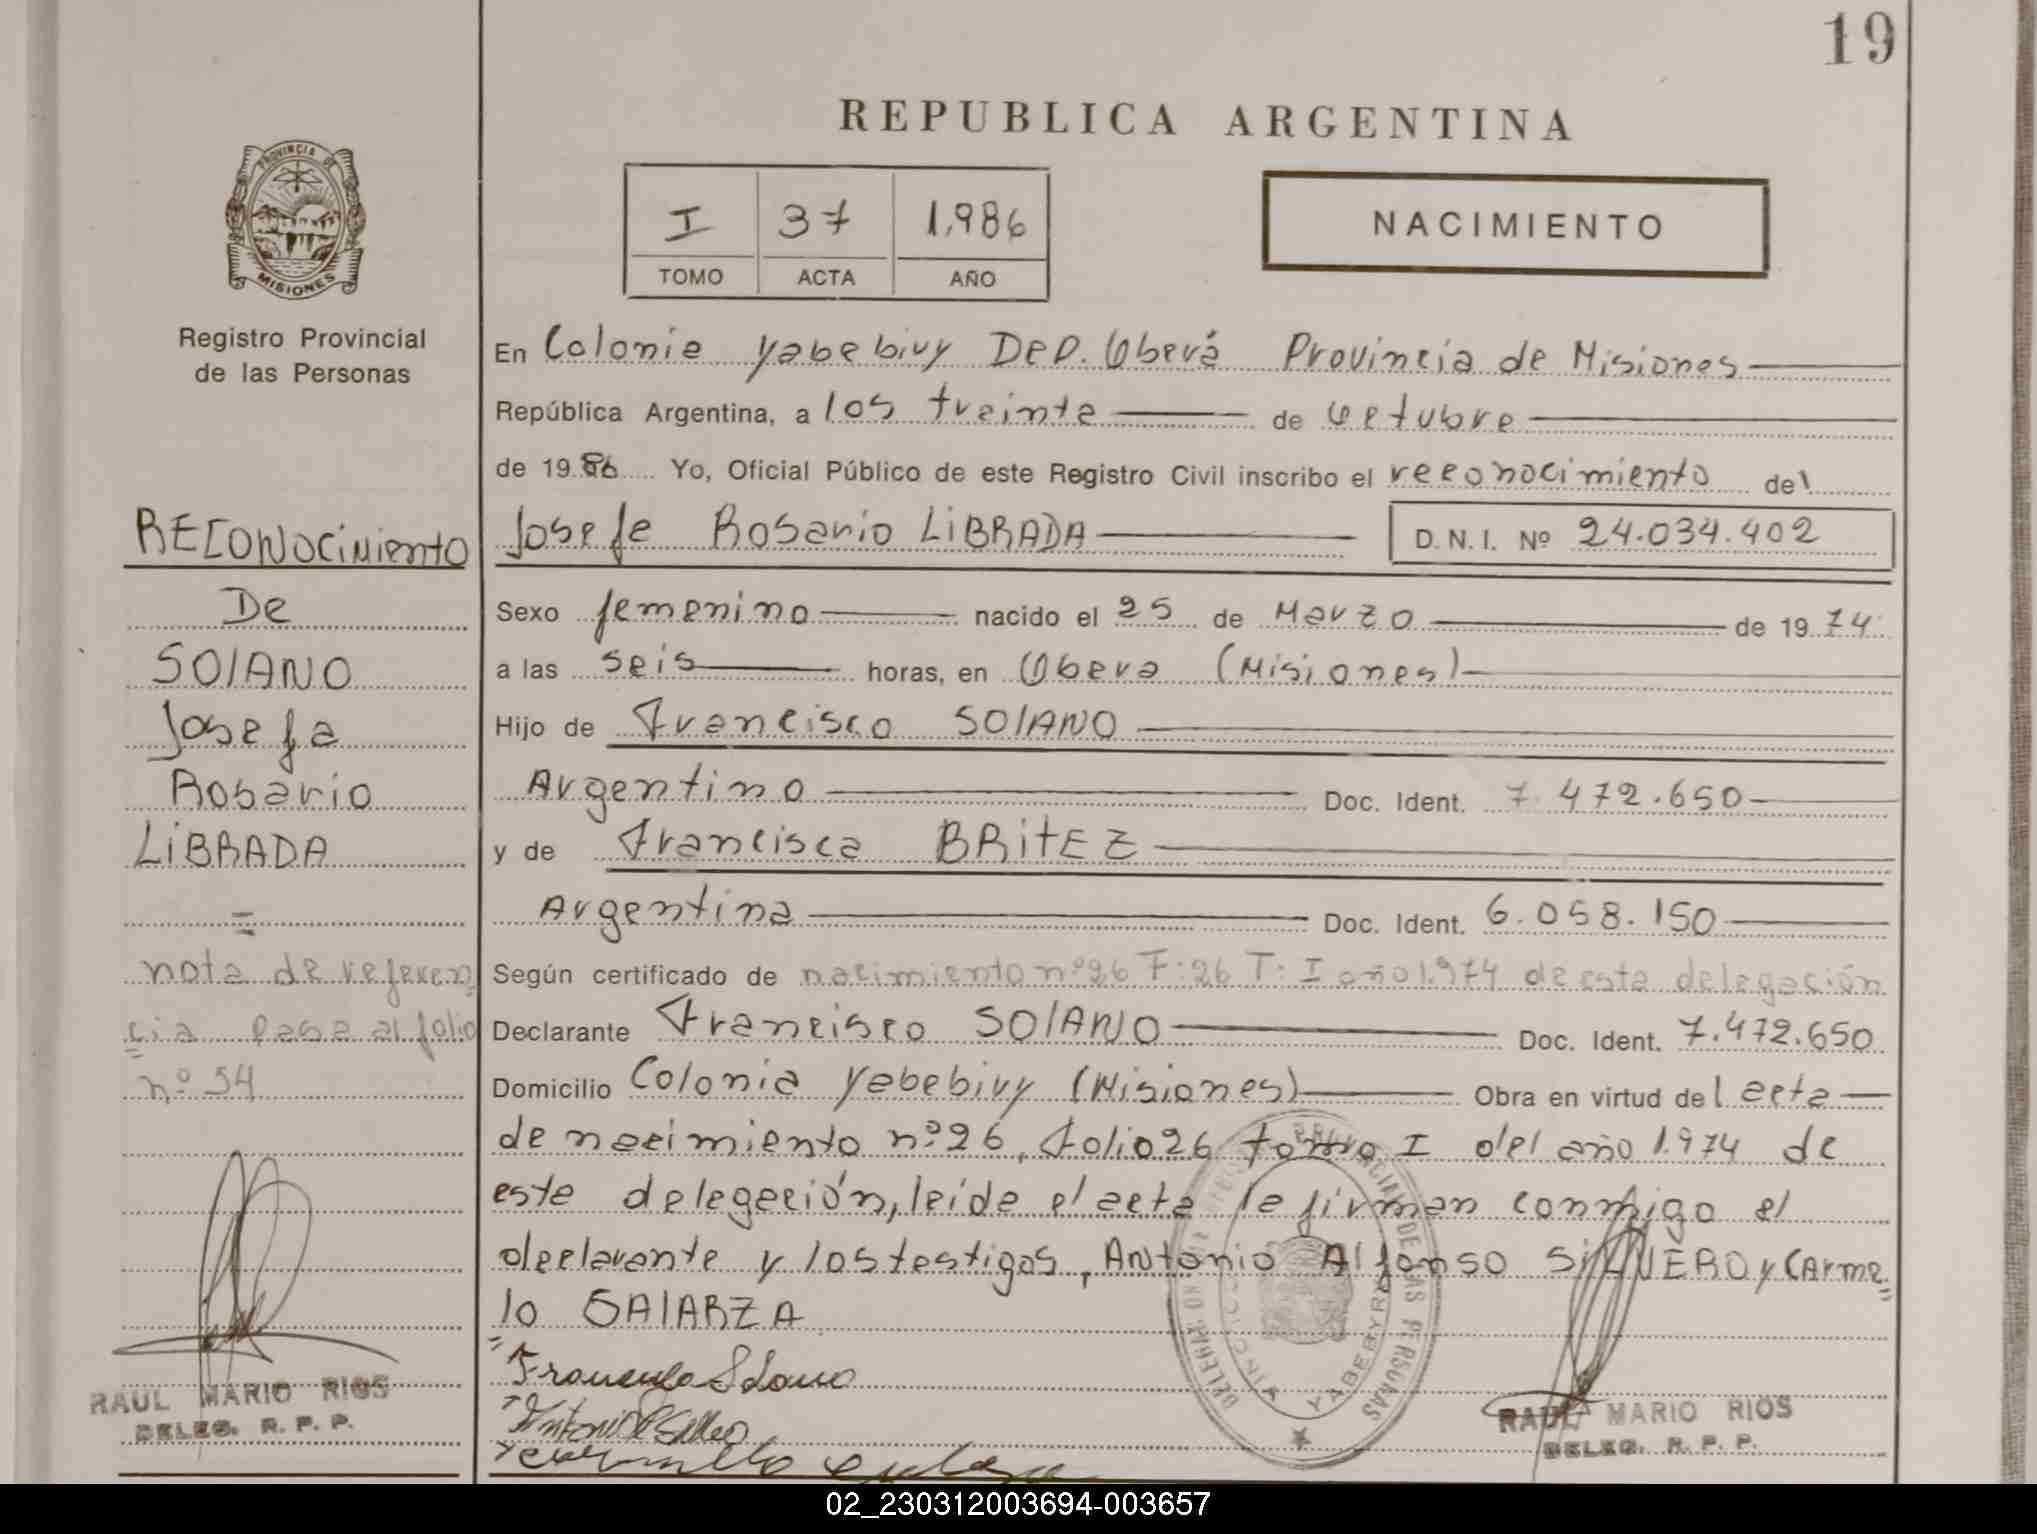 19
REPUBLICA ARGENTINA
PROVINCIA DE
MISIONES
Registro Provincial
de las Personas
I 37 1.986
TOMO ACTA AÑO
NACIMIENTO
En Colonia Yabebiry Dep. Oberá Provincia de Misiones
República Argentina, a los treinta de octubre
de 1986 Yo, Oficial Público de este Registro Civil inscribo el reconocimiento del
Josefa Rosario LIBRADA D.N.I. Nº 24.034.402
Sexo femenino nacido el 25 de Marzo de 1974
a las seis horas, en Obera (Misiones)
Hijo de Francisco SOLANO
Argentino Doc. Ident. 7.472.650
y de Francisca BRITEZ
Argentina Doc. Ident. 6.058.150
Según certificado de nacimiento nº 26 F: 26 T: I año 1.974 de esta delegación
Declarante Francisco SOLANO Doc. Ident. 7.472.650
Domicilio Colonia Yabebiry (Misiones) Obra en virtud del acta
de nacimiento nº 26, folio 26 tomo I del año 1.974 de
esta delegación, leida el acta la firman conmigo el
declarante y los testigos, Antonio Alfonso SILVERO y Carme
lo GALARZA
Francisco Solano
RECONOCIMIENTO
De
SOLANO
Josefa
Rosario
LIBRADA
=
nota de referen
cia pasa al folio
nº 54
RAUL MARIO RIOS
DELEG. R. P. P.
RAUL MARIO RIOS
DELEG. R. P. P.
02_230312003694-003657